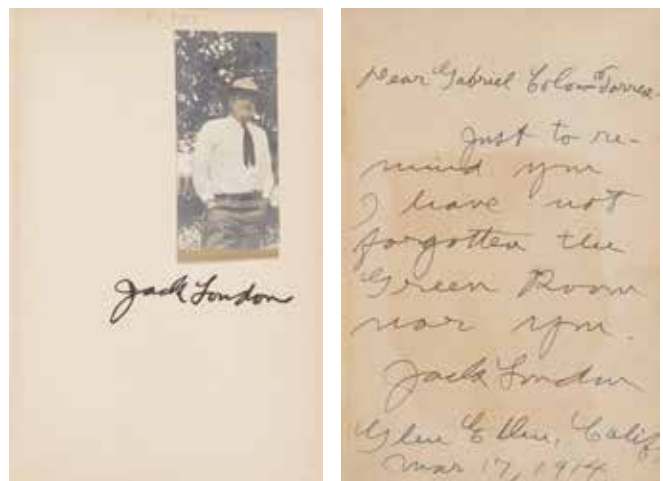 Jack London
Dear Gabriel
Just to re-
mind you
I have not
forgotten the
Green Room
nor you.
Jack London
Glen Ellen, Calif,
Mar 17, 1914